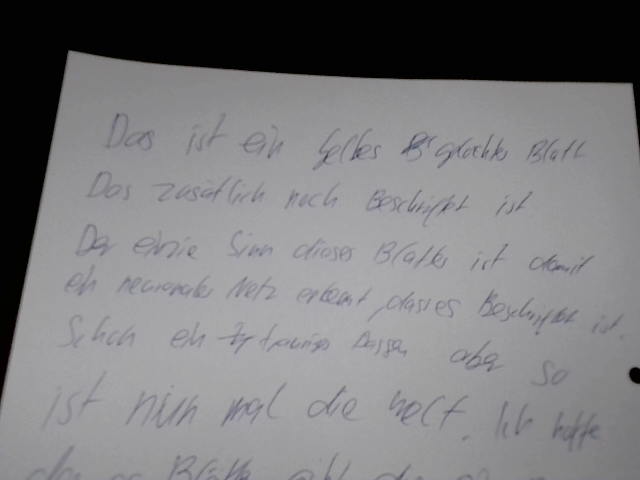 Das ist ein gelbes Blatt
Das zusätlich noch Beschriftet ist
Der einzie Sinn dieses Blattes ist damit
ein neuronales Netz erkennt, dass es Beschriftet ist.
Schon ein trauriges aber so
ist nun mal die Welt. Ich hoffe